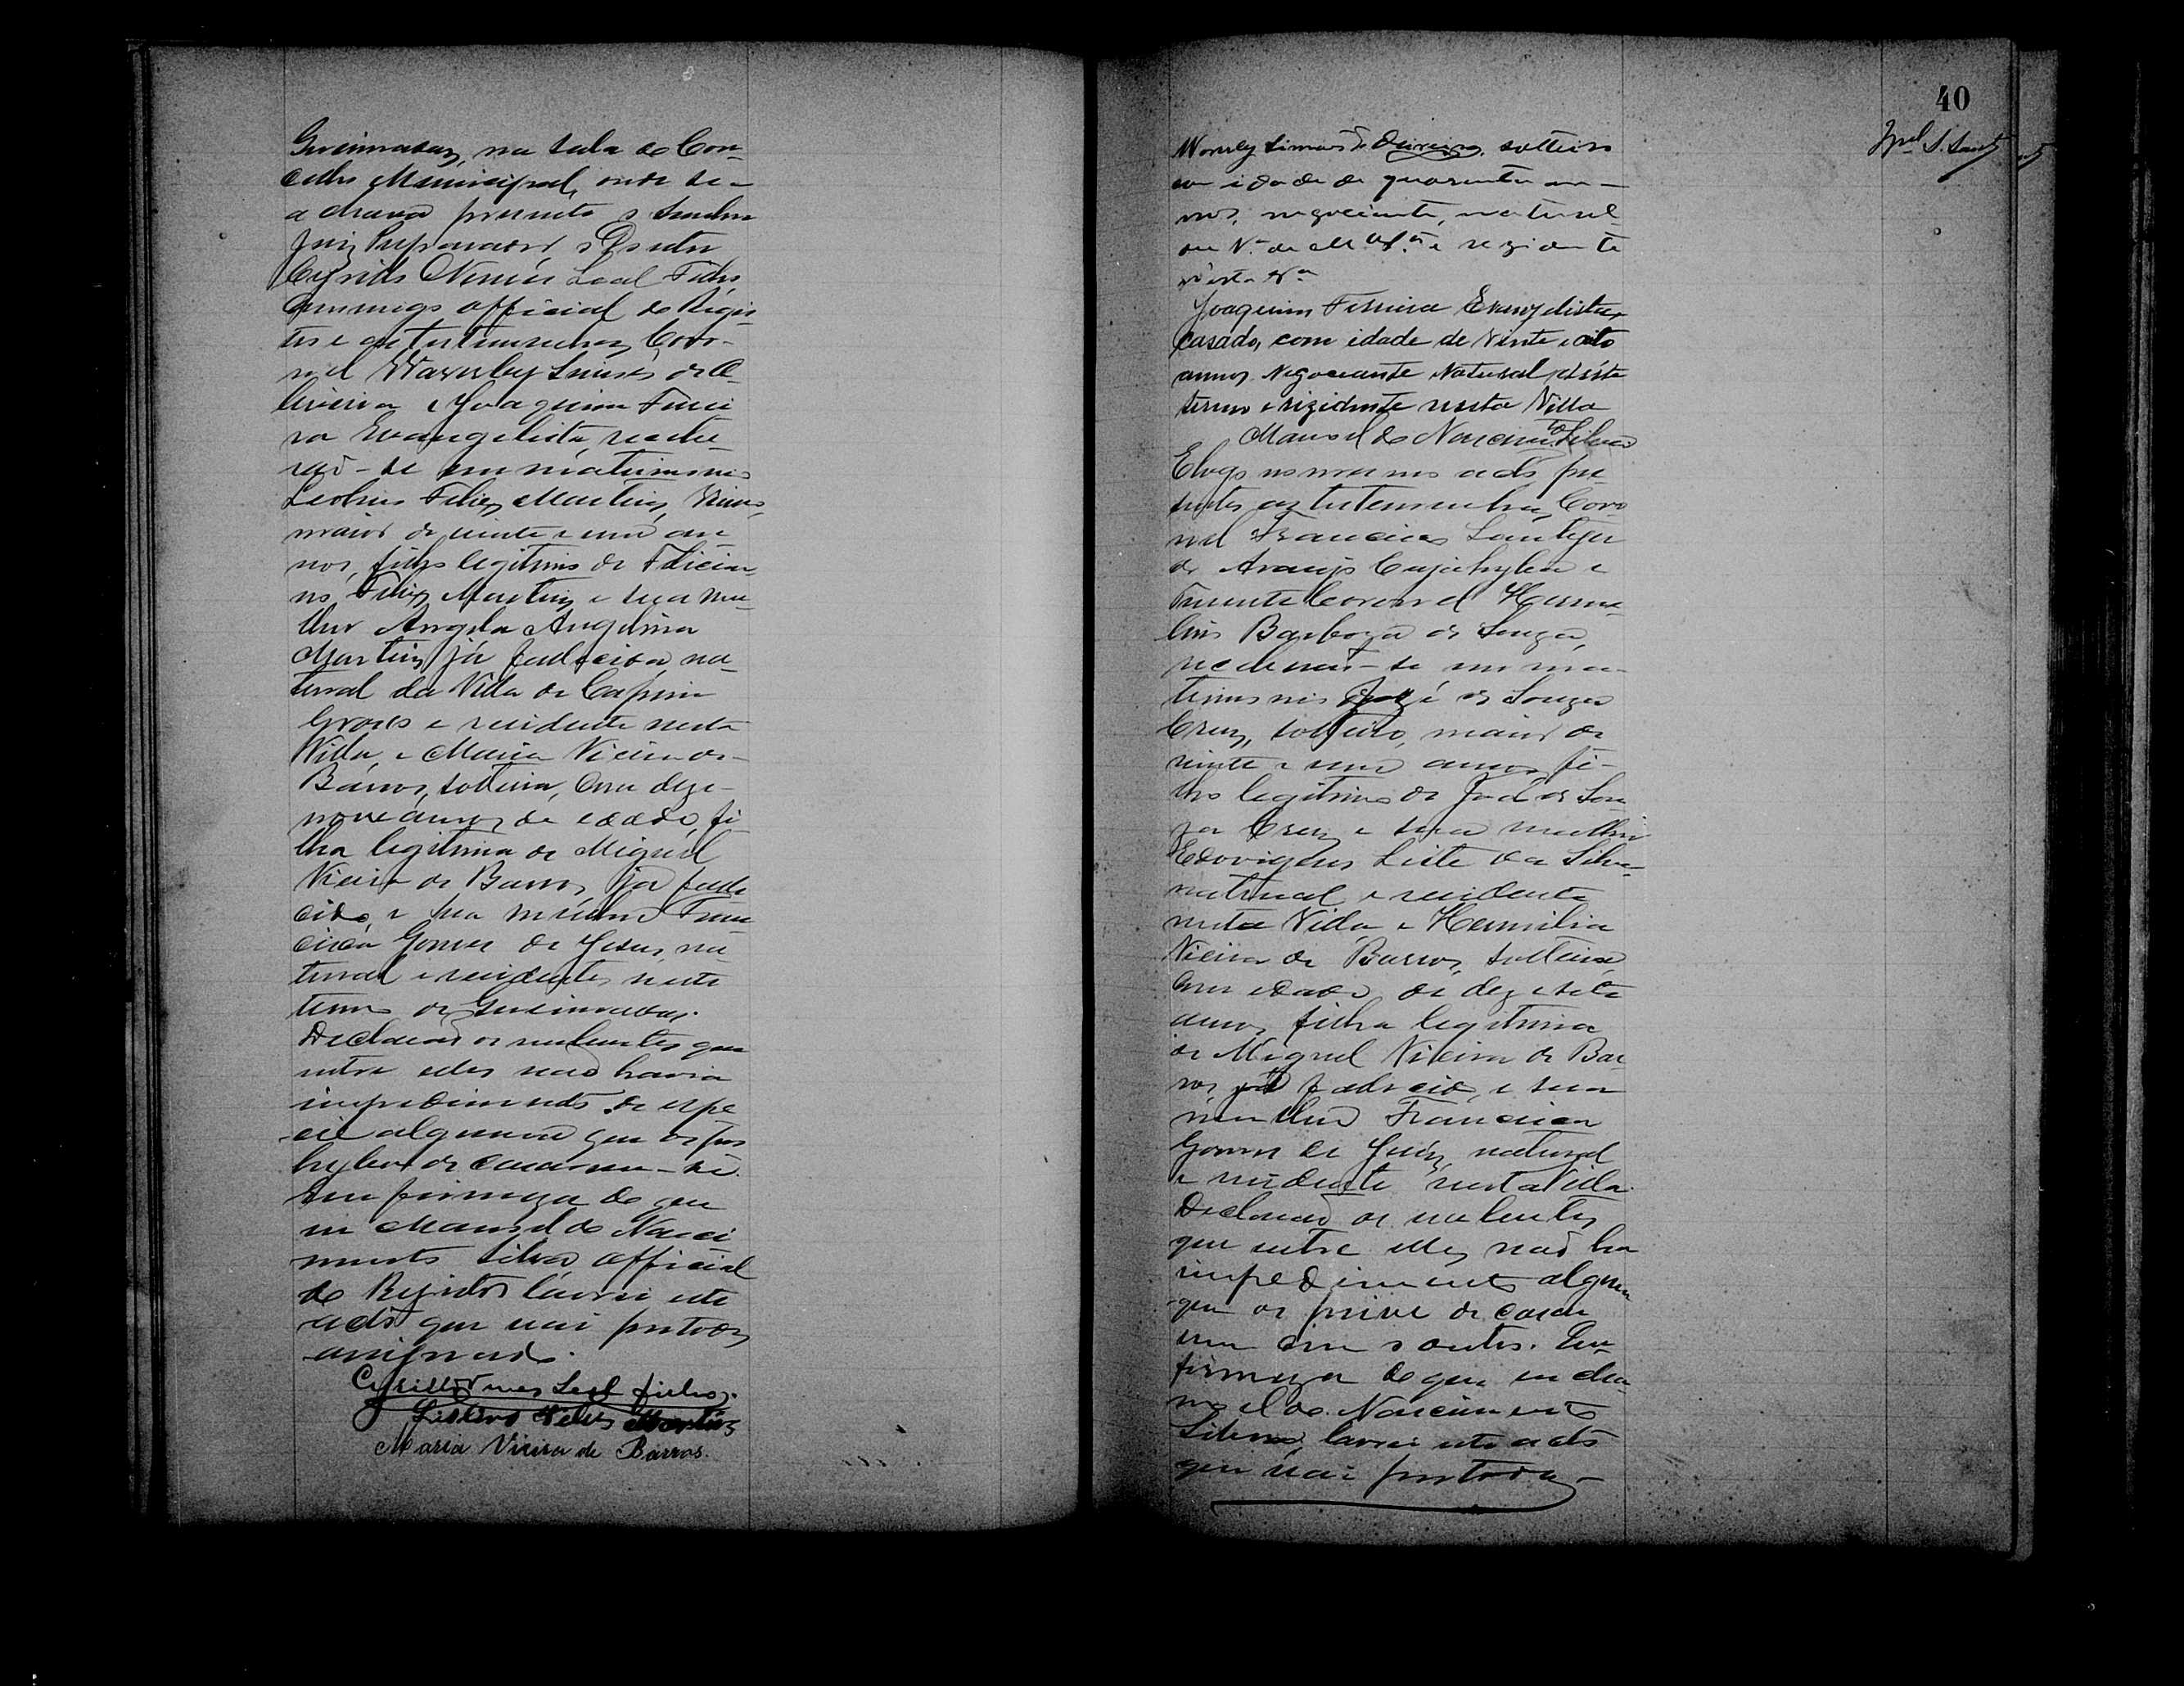 Queimadas, na sala do Con-
celho Municipal, onde se
achava presente o Senhor
Juiz Preparador, o Doutor
Cyrillo Nunes Leal Filho,
commigo official do Regis-
tro e as testemunhas, Coro-
nel Waverley Simões de O-
liveira e Joaquim Ferrei-
ra Evangelista, recebe-
rão-se em matrimonio
Felix Martins, viuvo,
maior de vinte e um an-
nos, filho legitimo de Felicia-
no Felix Martins e sua mu-
lher Angela Angelina
Martins já fallecida, na-
tural da Villa de Capim
Grosso e residente nesta
Villa, e Maria Vieira de
Barros, solteira, com deze-
nove annos de edade, fi-
lha legitima de Miguel
Vieira de Barros, já falle-
cido, e sua mulher Fran-
cisca Gomes de Jesus, na-
tural e residente neste
termo de Queimadas.
Declarão os nubentes que
entre elles não havia
impedimento de espe-
cie alguma que os pro-
hyba de casarem-se.
Em firmeza do que
eu Manoel do Nasci-
mento Silva official
do Registro lavrei este
acto que vai por todos
assignado.
Cyrillo Nunes Leal filho.
Martins
Maria Vieira de Barros.
40
Waverley Simões de Oliveira, solteiro
com idade de quarenta an-
nos, negociante, natural
de e rezidente
n'esta Vª
Joaquim Ferreira Evangelista,
casado, com idade de Vinte e oito
annos Negociante Natural d'éste
termo e rizidente nesta Villa
Manoel do Nascimto Silva
E logo no mesmo acto pre-
sentes as testemunhas, Coro-
nel Francisco
de Araujo Cajahyba e
Tenente Coronel Herme-
lino Barboza de Souza,
receberão-se em ma-
trimonio José de Souza
Cruz, solteiro, maior de
vinte e um annos fi-
lho legitimo de José de Sou-
za Cruz e sua mulher
Edovigens Leite da Silva
natural e residente
nesta Villa e Hermilia
Vieira de Barros, solteira,
com edade de dezesete
annos filha legitima
de Miguel Vieira de Bar-
ros, já fallecido, e sua
mulher Francisca
Gomes de Jesús, natural
e residente nesta Villa.
Declarão os nubentes
que entre elles não ha
impedimento algum
que os prive de casar
um com o outro. Em
firmeza do que eu Ma-
noel do Nascimento
Silva, lavrei este acto
que vai por todos